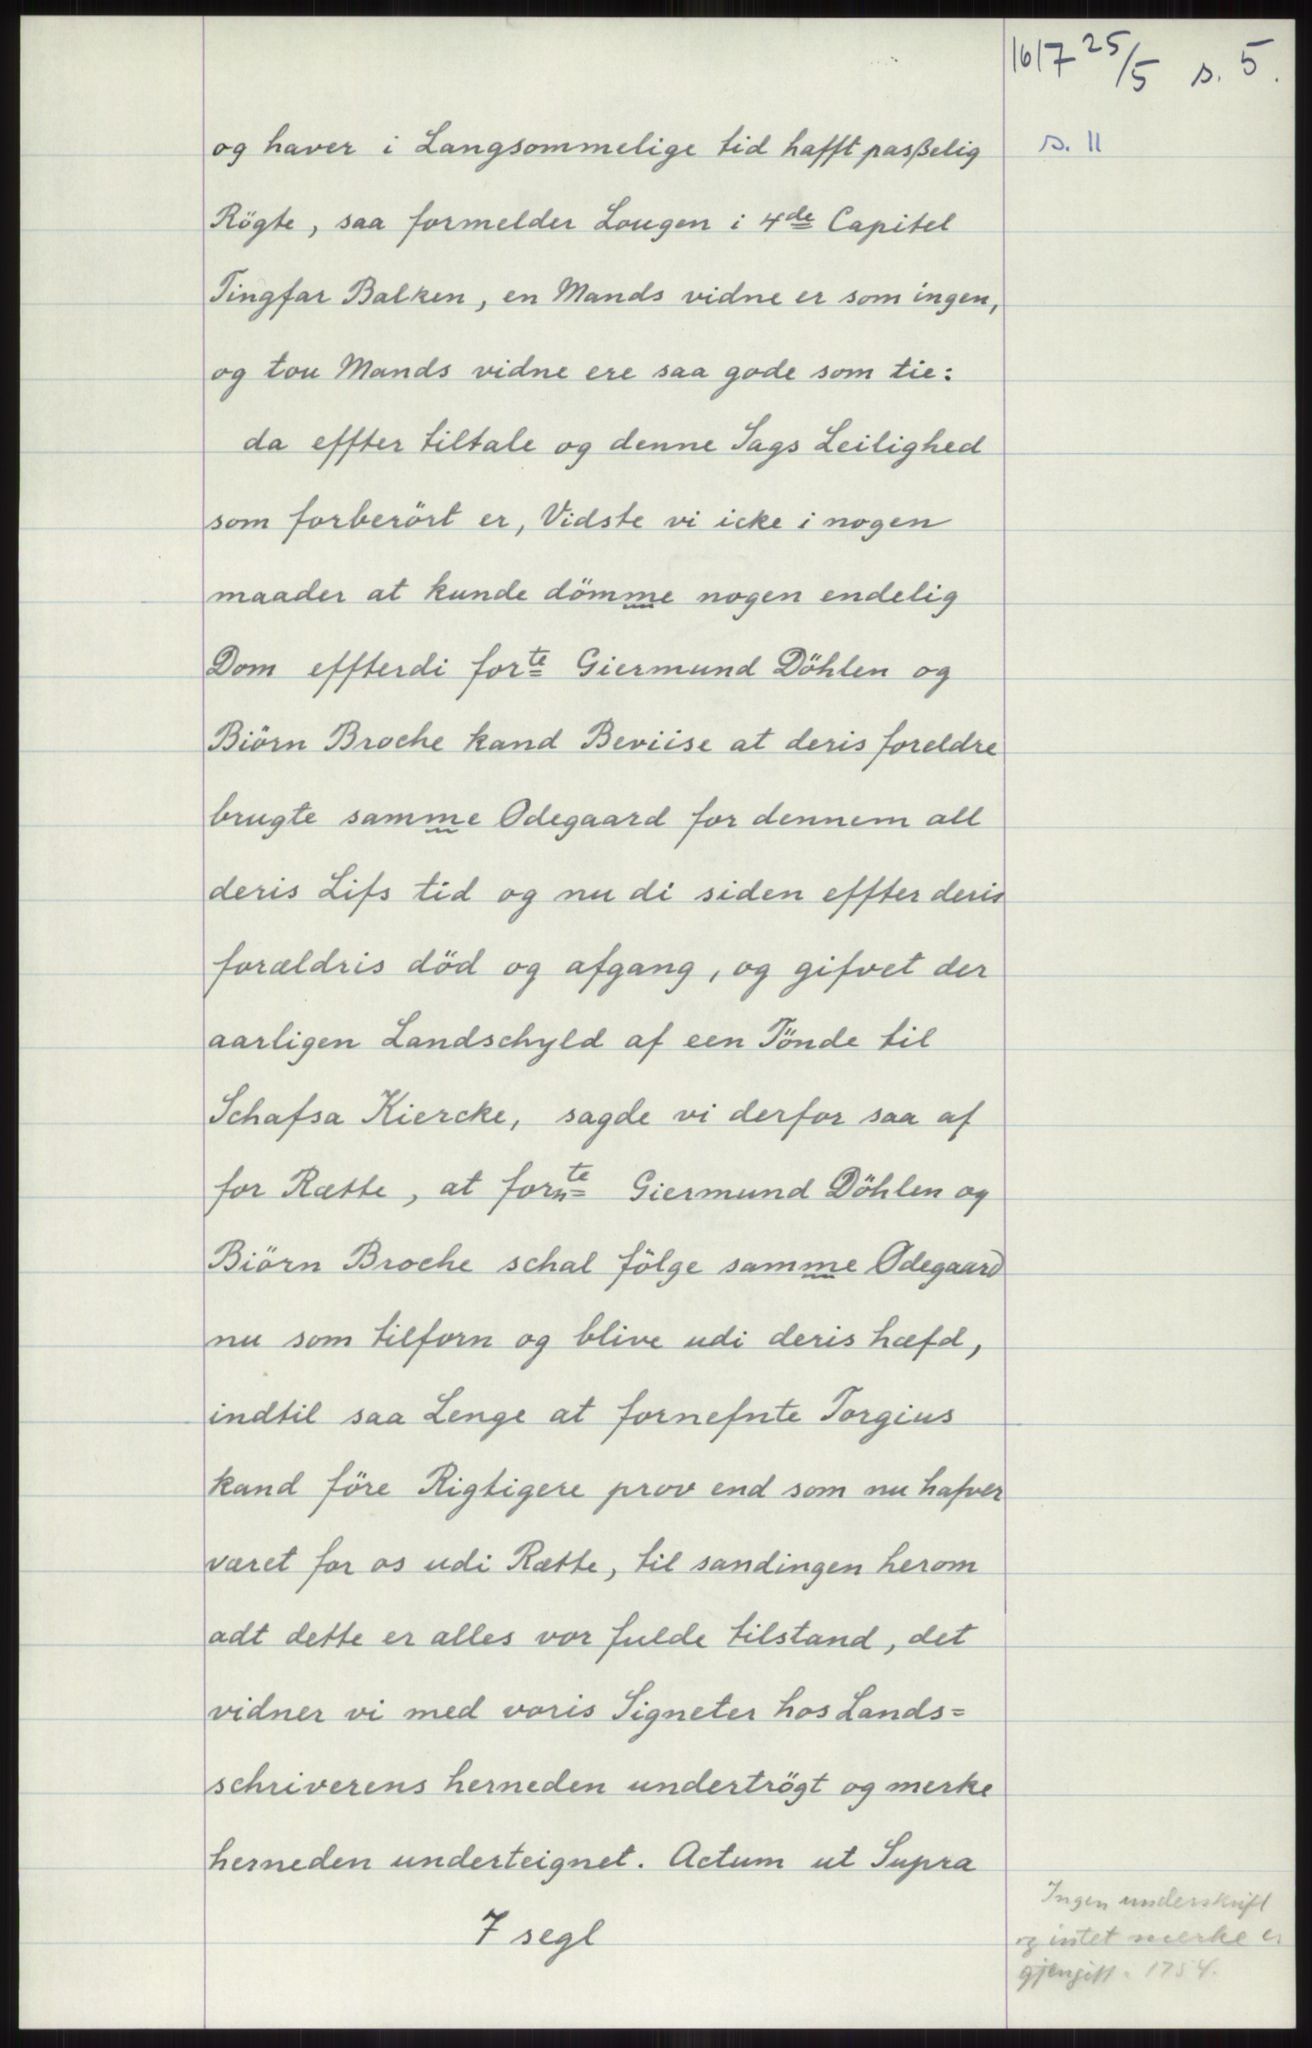 1617 25/5 s. 5.
s. 11
og haver i Langsommelige tid hafft pasßelig
Rögte, saa formelder Lougen i 4de Capitel
Tingfar Balken, en Mands vidne er som ingen,
og tou Mands vidne ere saa gode som tie:
da effter tiltale og denne Sags Leilighed
som forberört er, Vidste vi icke i nogen
maader at kunde dömme nogen endelig
Dom effterdi forte Giermund Döhlen og
Biörn Broche kand Beviise at deris foreldre
brugte samme Ödegaard for dennem all
deris Lifs tid og nu di siden effter deris
forældris död og afgang, og gifvet der
aarligen Landschyld af een Tönde til
Schafsa Kiercke, sagde vi derfor saa af
for Rætte, at fornte Giermund Döhlen og
Biörn Broche schal fölge samme Ödegaard
nu som tilforn og blive udi deris hæfd,
indtil saa Lenge at fornefnte Torgius
kand före Rigtigere prov end som nu hafver
været for os udi Rætte, til sandingen herom
adt dette er alles vor fulde tilstand, det
vidner vi med voris Signeter hos Lands=
schriverens herneden undertrögt og merke
herneden underteignet. Actum ut Supra
7 segl
Ingen underskrift
og intet merke er
gjengitt. 1754.